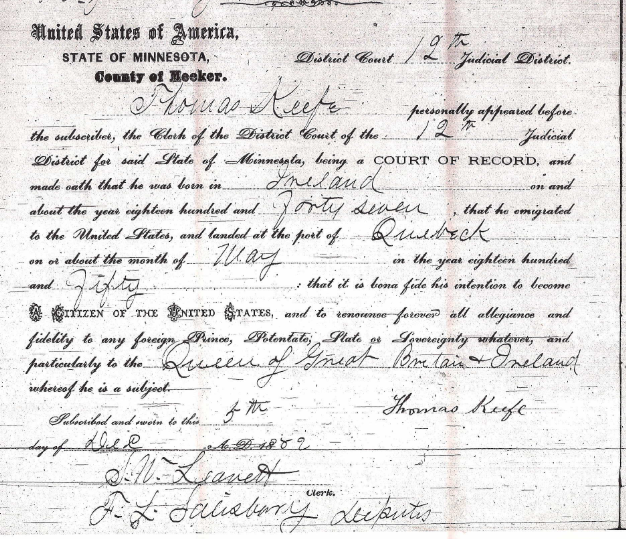 United States of America,
STATE OF MINNESOTA,
District Court 12th Judicial District.
County of Meeker.
Thomas Keefe personally appeared before
the subscriber, the Clerk of the District Court of the 12th Judicial
District for said State of Minnesota, being a COURT OF RECORD, and
made oath that he was born in Ireland on and
about the year eighteen hundred and Forty seven, that he emigrated
to the United States, and landed at the port of Quebeck
on or about the month of May in the year eighteen hundred
and Fifty ; that it is bona fide his intention to become
A CITIZEN OF THE UNITED STATES, and to renounce forever all allegiance and
fidelity to any foreign Prince, Potentate, State or Sovereignty whatever, and
particularly to the Queen of Great Britain & Ireland
whereof he is a subject.
Subscribed and sworn to this 5th Thomas Keefe
day of Dec A. D. 1882
Clerk.
F. L. Salisbury